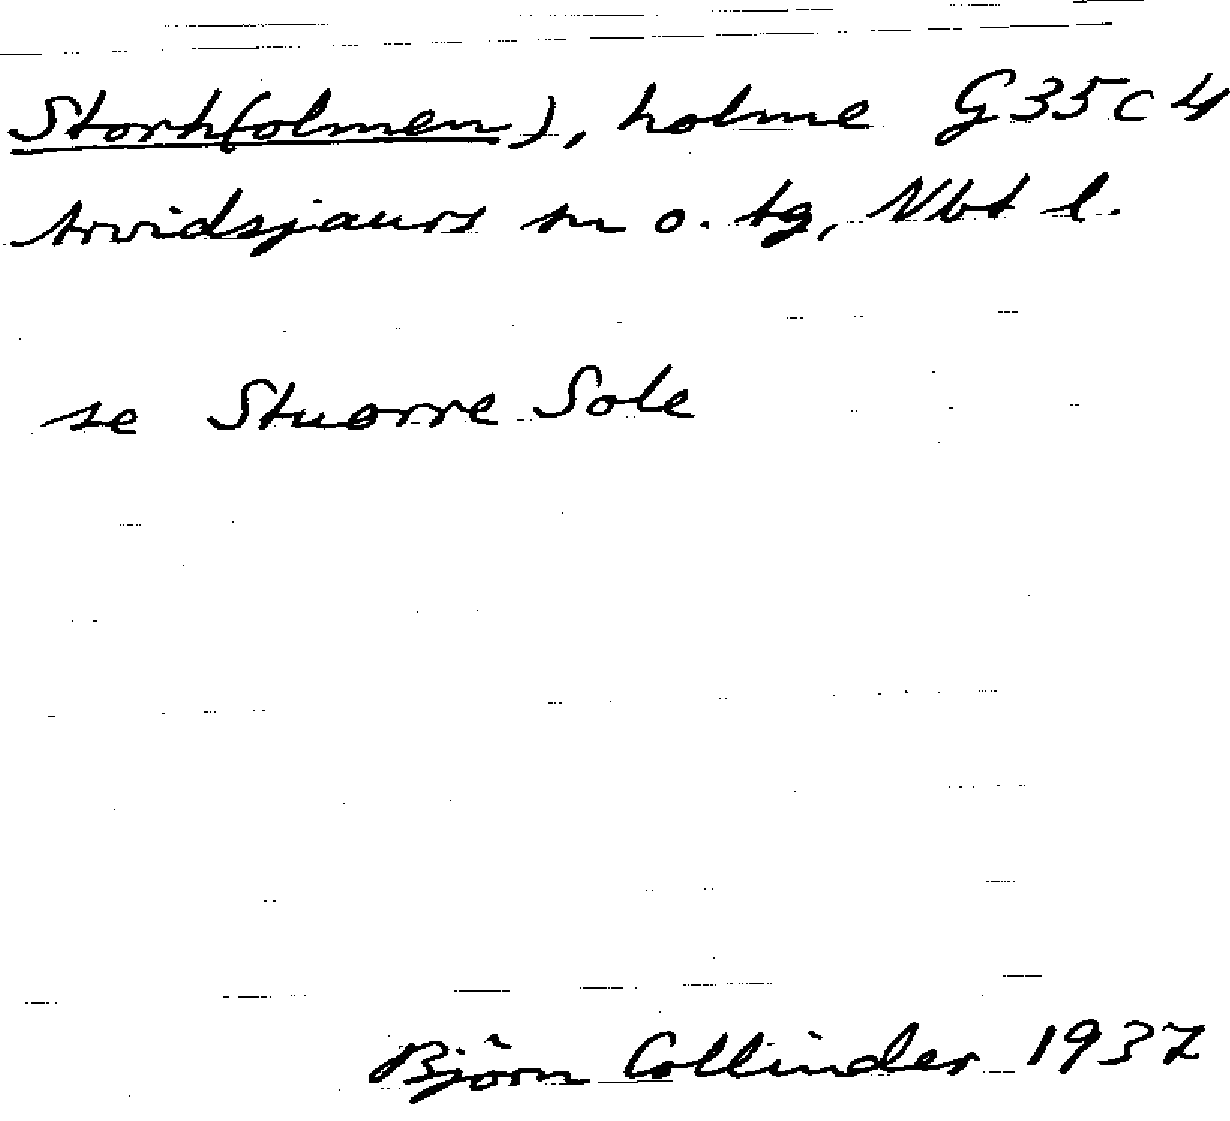 Storh(olmen), holme G35c4
Arvidsjaurs sn o. tg, Nbt l.
se Stuorre Sole
Björn Collinder 1937